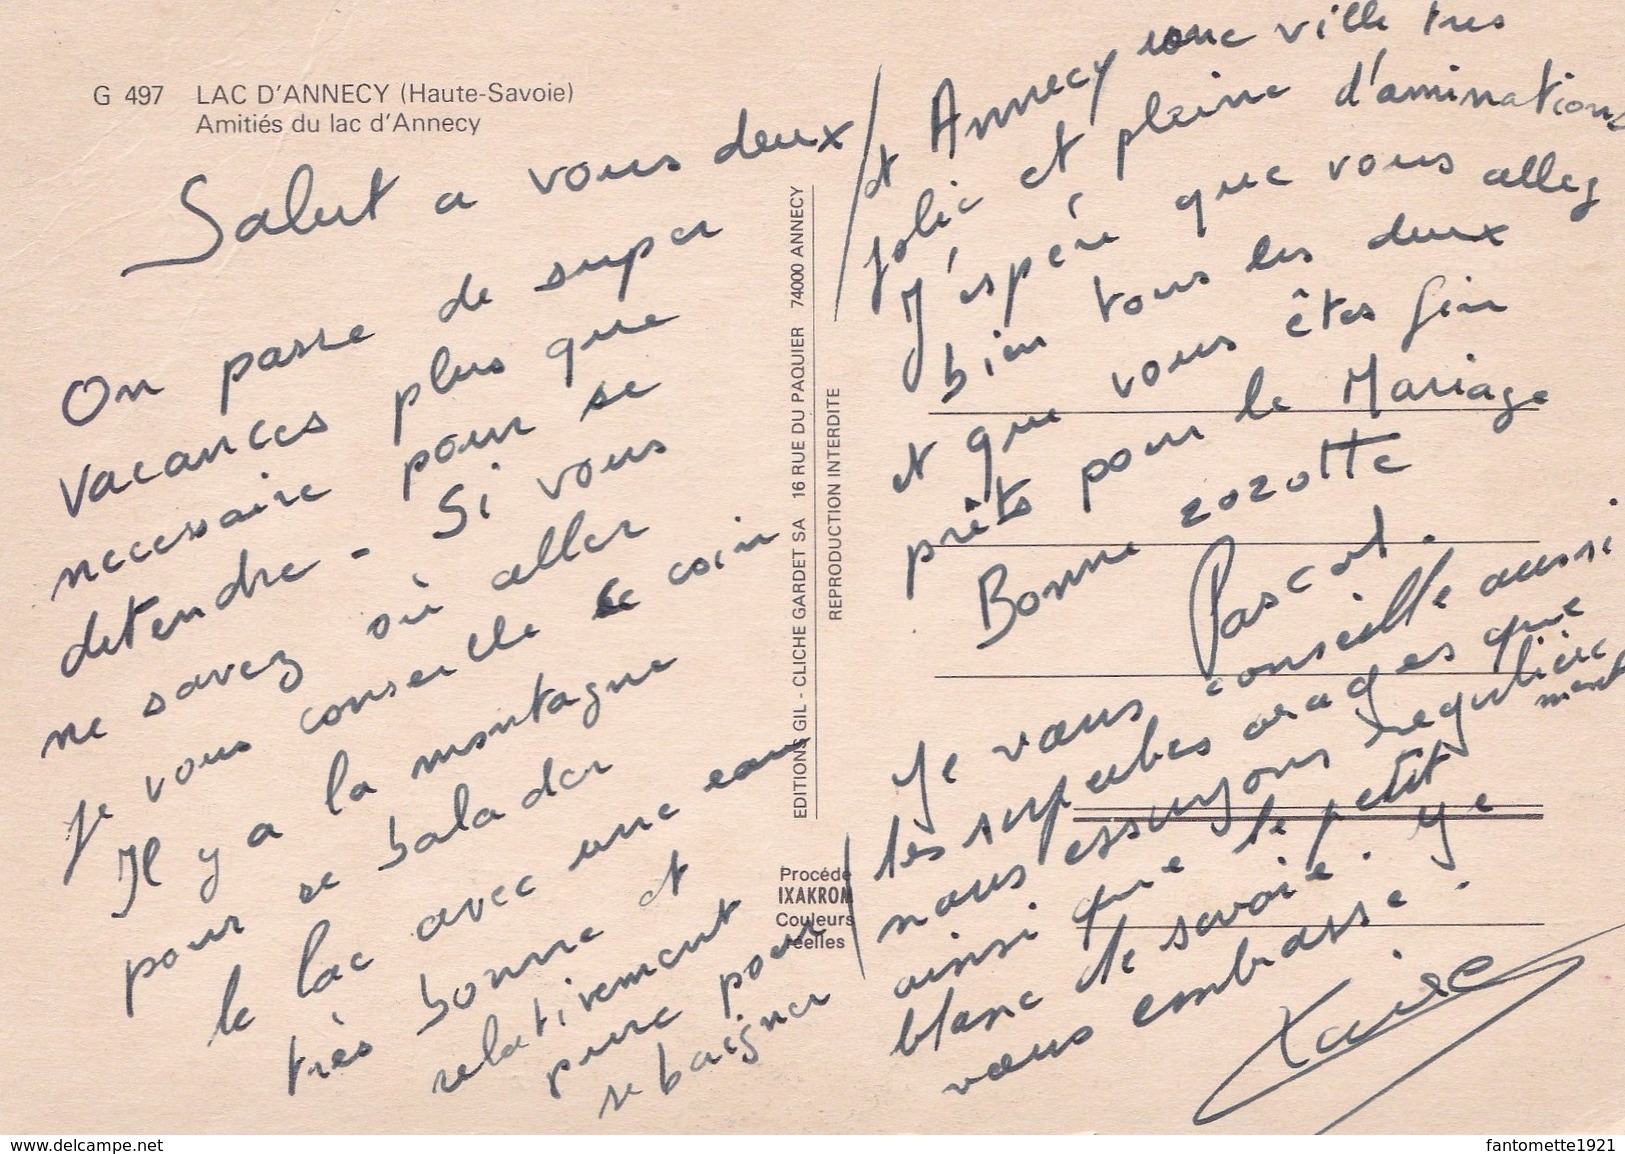 G 497 LAC D'ANNECY (Haute-Savoie)
Amitiés du lac d'Annecy
Salut a vous deux
On passe de super
vacances plus que
necessaire pour se
detendre - Si vous
ne savez où aller
je vous conseille ce coin
Il y a la montagne
pour se balader
le lac avec une eau
très bonne et
relativement
pure pour
se baigner
et Annecy une ville tres
jolie et pleine d'aminations
J'espère que vous allez
bien tous les deux
et que vous êtes fin
prêts pour le Mariage
Bonne zozotte
Pascal.
Je vous conseille aussi
les superbes orages que
nous essuyons regulière
ment
ainsi que le petit
blanc de savoie. Je
vous embrasse.
EDITIONS GIL - CLICHE GARDET SA 16 RUE DU PAQUIER 74000 ANNECY
REPRODUCTION INTERDITE
Procédé
IXAKROM
Couleurs
réelles
www.delcampe.net
fantomette1921